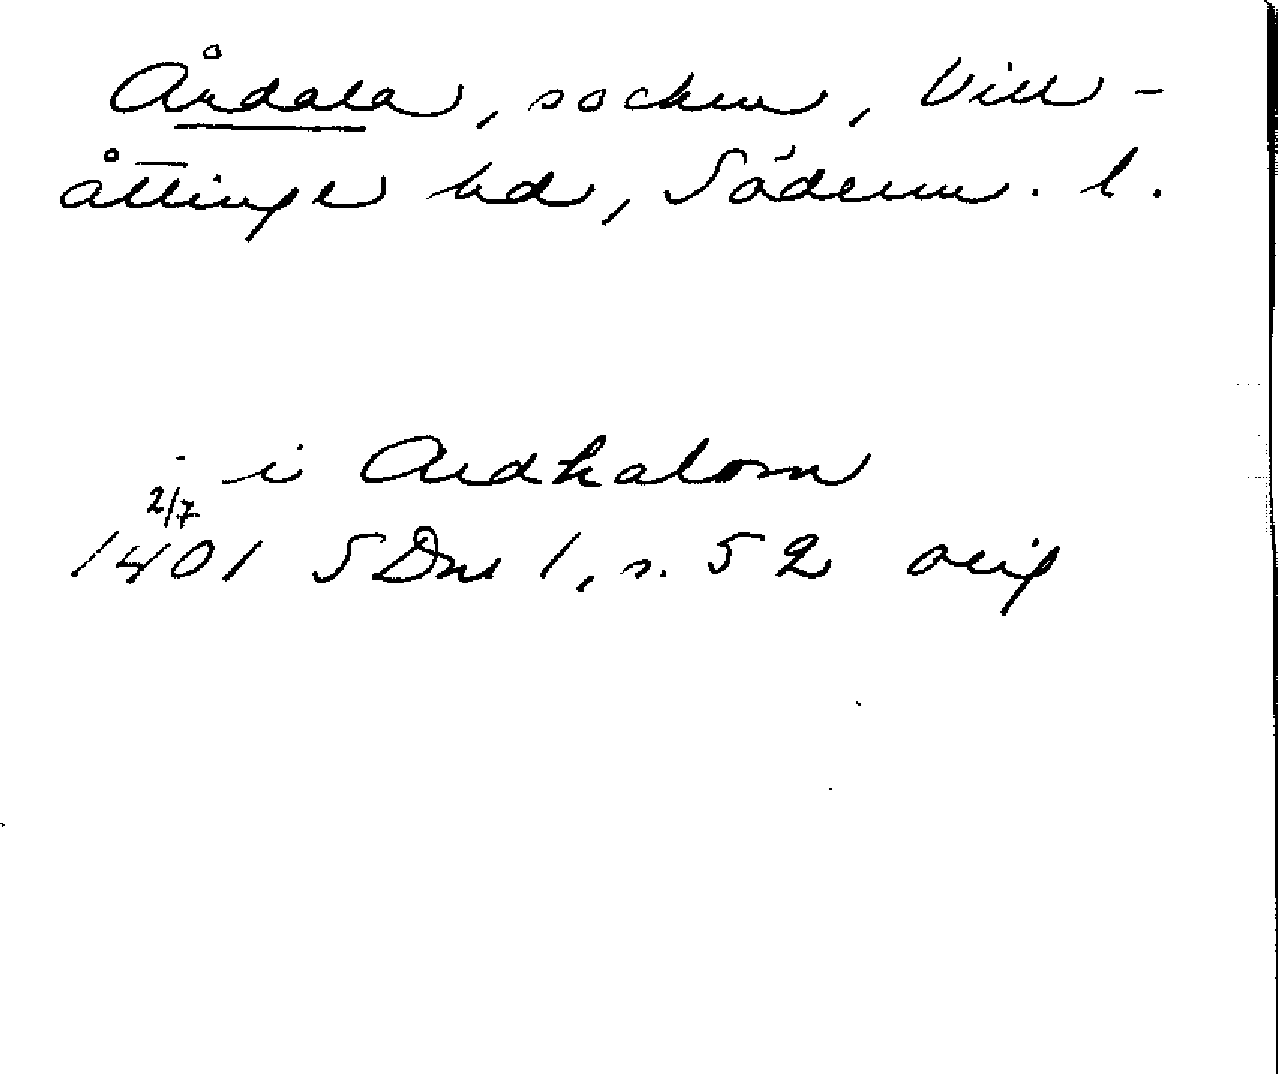 Årdala, socken, Vill-
åttinge hd, Söderm. l.
i Ardhalom
2/7
1401 SDns 1, s. 52 orig